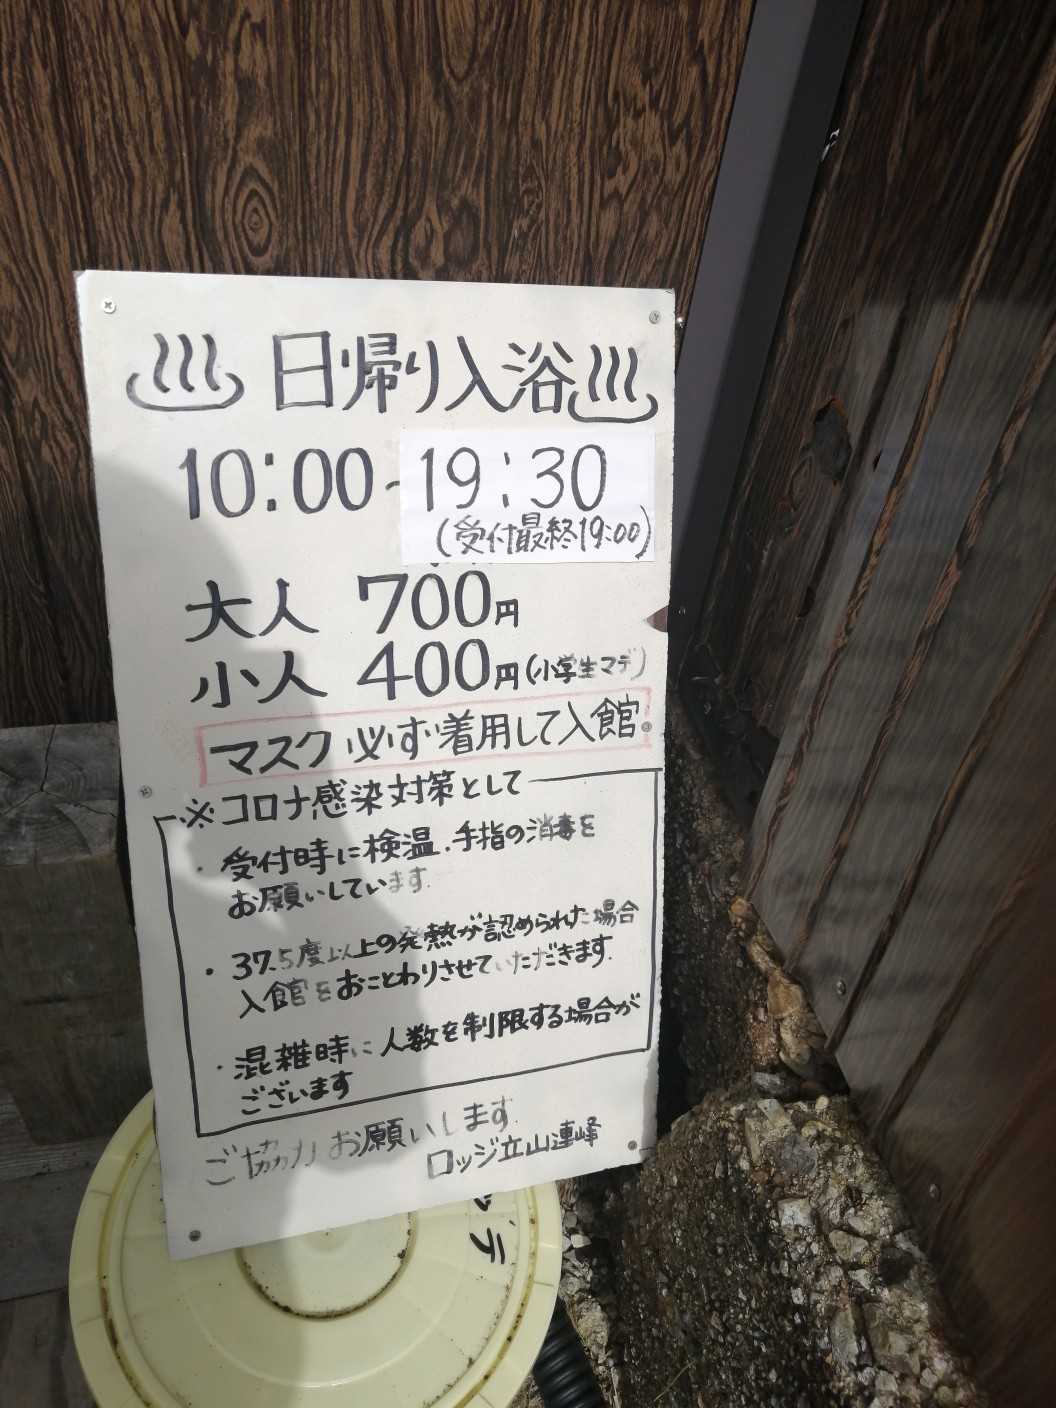 ♨ 日帰り入浴 ♨
10:00-19:30
(受付最終19:00)
大人 700円
小人 400円(小学生マデ)
マスク必ず着用して入館
※コロナ感染対策として
・受付時に検温.手指の消毒を
お願いしています.
・37.5度以上の発熱が認められた場合
入館をおことわりさせていただきます.
・混雑時に人数を制限する場合が
ございます
ご協力お願いします.
ロッジ立山連峰
ッデ